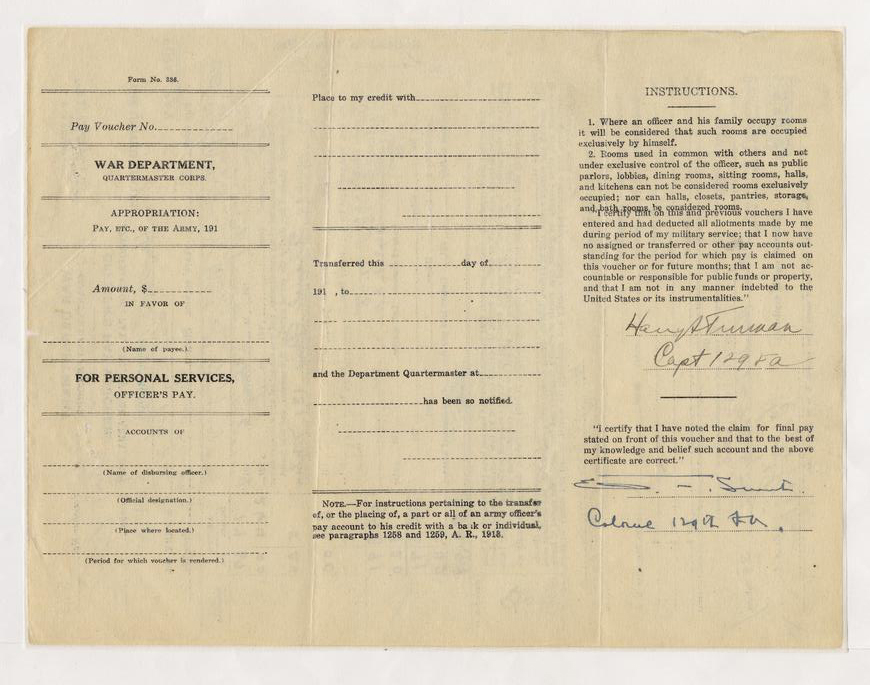 Form No. 336.
Pay Voucher No.
WAR DEPARTMENT,
QUARTERMASTER CORPS.
APPROPRIATION:
PAY, ETC., OF THE ARMY, 191
Amount, $
IN FAVOR OF
(Name of payee.)
FOR PERSONAL SERVICES,
OFFICER'S PAY.
ACCOUNTS OF
(Name of disbursing officer.)
(Official designation.)
(Place where located.)
(Period for which voucher is rendered.)
Place to my credit with
Transferred this day of
191 , to
and the Department Quartermaster at
has been so notified.
NOTE.—For instructions pertaining to the transfer
of, or the placing of, a part or all of an army officer's
pay account to his credit with a bank or individual,
see paragraphs 1258 and 1259, A. R., 1913.
INSTRUCTIONS.
1. Where an officer and his family occupy rooms
it will be considered that such rooms are occupied
exclusively by himself.
2. Rooms used in common with others and not
under exclusive control of the officer, such as public
parlors, lobbies, dining rooms, sitting rooms, halls,
and kitchens can not be considered rooms exclusively
occupied; nor can halls, closets, pantries, storage,
and bath rooms be considered rooms.
"I certify that on this and previous vouchers I have
entered and had deducted all allotments made by me
during period of my military service; that I now have
no assigned or transferred or other pay accounts out-
standing for the period for which pay is claimed on
this voucher or for future months; that I am not ac-
countable or responsible for public funds or property,
and that I am not in any manner indebted to the
United States or its instrumentalities."
Harry S Truman
Capt 129 FA
"I certify that I have noted the claim for final pay
stated on front of this voucher and that to the best of
my knowledge and belief such account and the above
certificate are correct."
Colonel 129th FA.